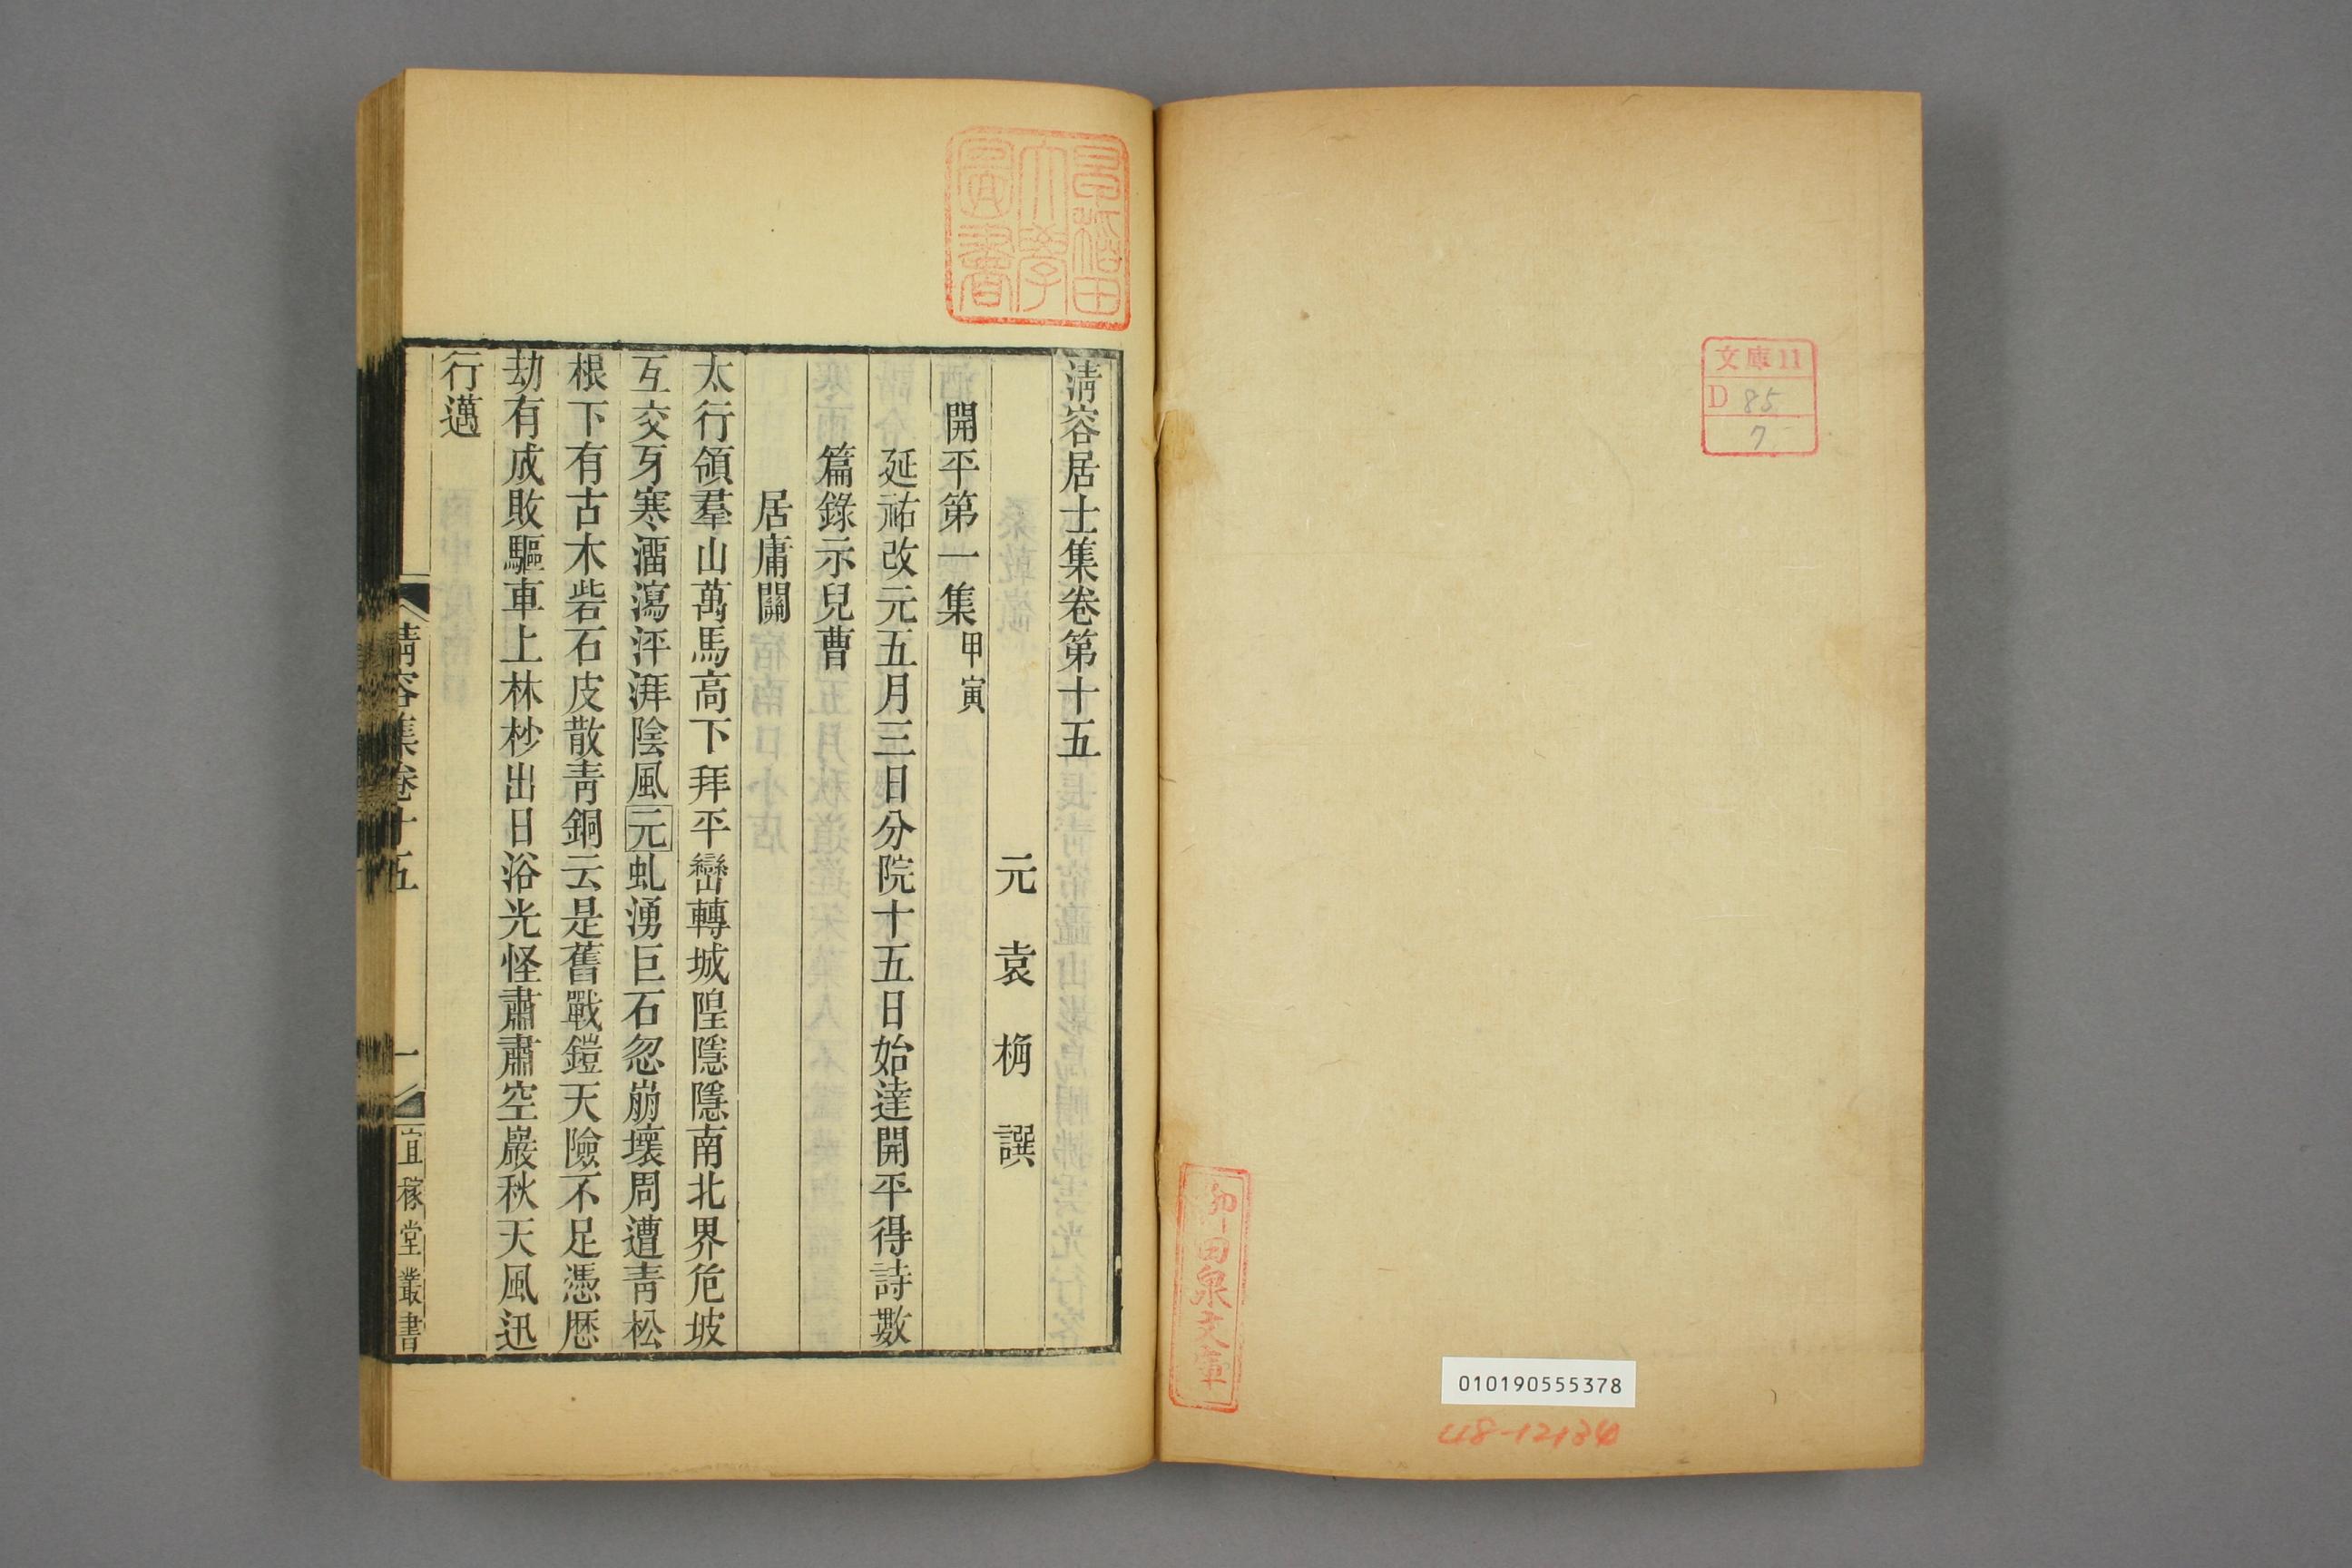 文庫11
D 85
7
柳田泉文庫
010190555378
48-12134
早稲田
大學
圖書
淸容居士集卷第十五
元 袁 桷 譔
開平第一集甲寅
延祐改元五月三日分院十五日始達開平得詩數
篇錄示兒曹
居庸關
太行領羣山萬馬高下拜平巒轉城隍隱隱南北界危坡
互交牙寒溜瀉泙湃陰風元虬湧巨石忽崩壞周遭靑松
根下有古木砦石皮散靑銅云是舊戰鎧天險不足憑歷
劫有成敗驅車上林杪出日浴光怪肅肅空巖秋天風迅
行邁
淸容集卷十五
一
宜稼堂叢書